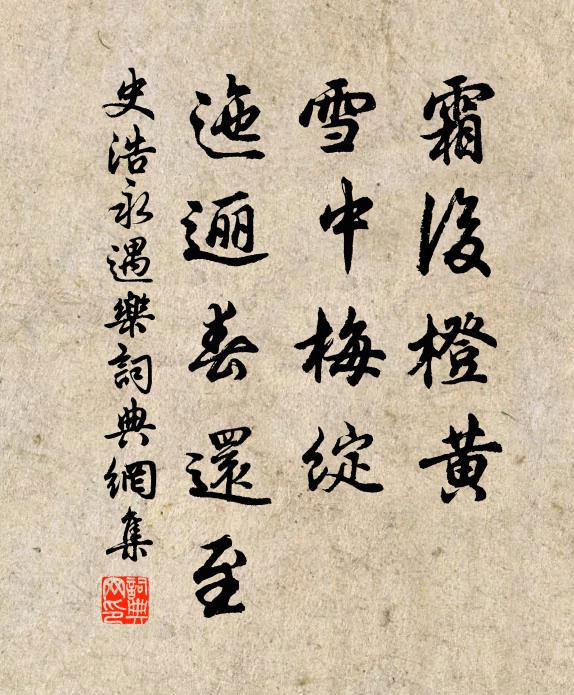 霜後橙黄
雪中梅綻
迤逦春還至
史浩永遇樂詞典網集
詞典网印